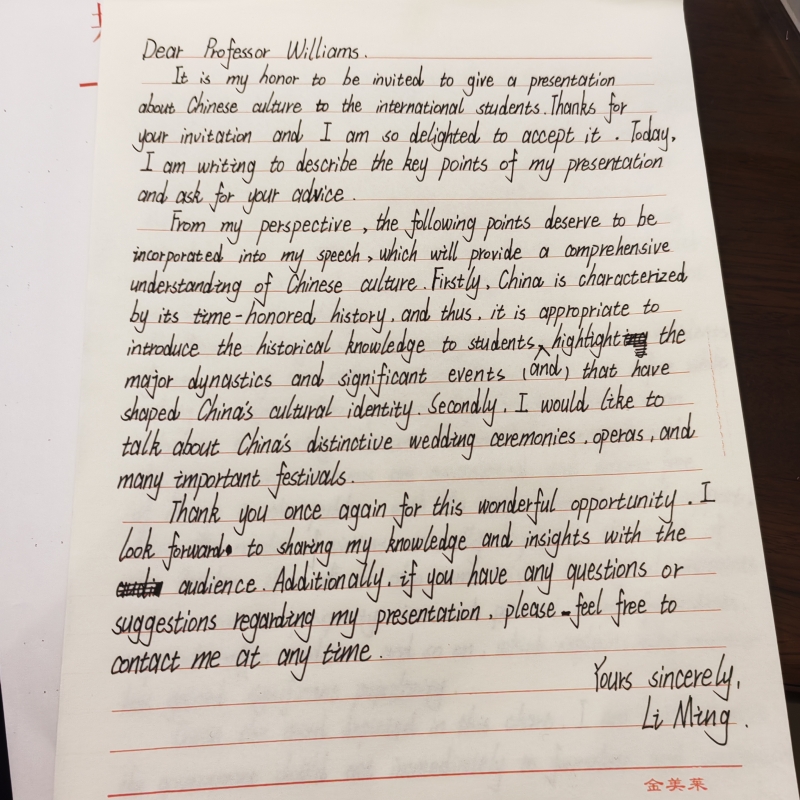 Dear Professor Williams.
It is my honor to be invited to give a presentation
about Chinese culture to the international students. Thanks for
your invitation and I am so delighted to accept it. Today,
I am writing to describe the key points of my presentation
and ask for your advice.
From my perspective, the following points deserve to be
incorporated into my speech, which will provide a comprehensive
understanding of Chinese culture. Firstly, China is characterized
by its time-honored history, and thus, it is appropriate to
introduce the historical knowledge to students, highlight the
major dynastics and significant events (and) that have
shaped China's cultural identity. Secondly, I would like to
talk about China's distinctive wedding ceremonies, operas, and
many important festivals.
Thank you once again for this wonderful opportunity. I
look forward to sharing my knowledge and insights with the
audience. Additionally, if you have any questions or
suggestions regarding my presentation, please feel free to
contact me at any time.
Yours sincerely,
Li Ming.
金美莱